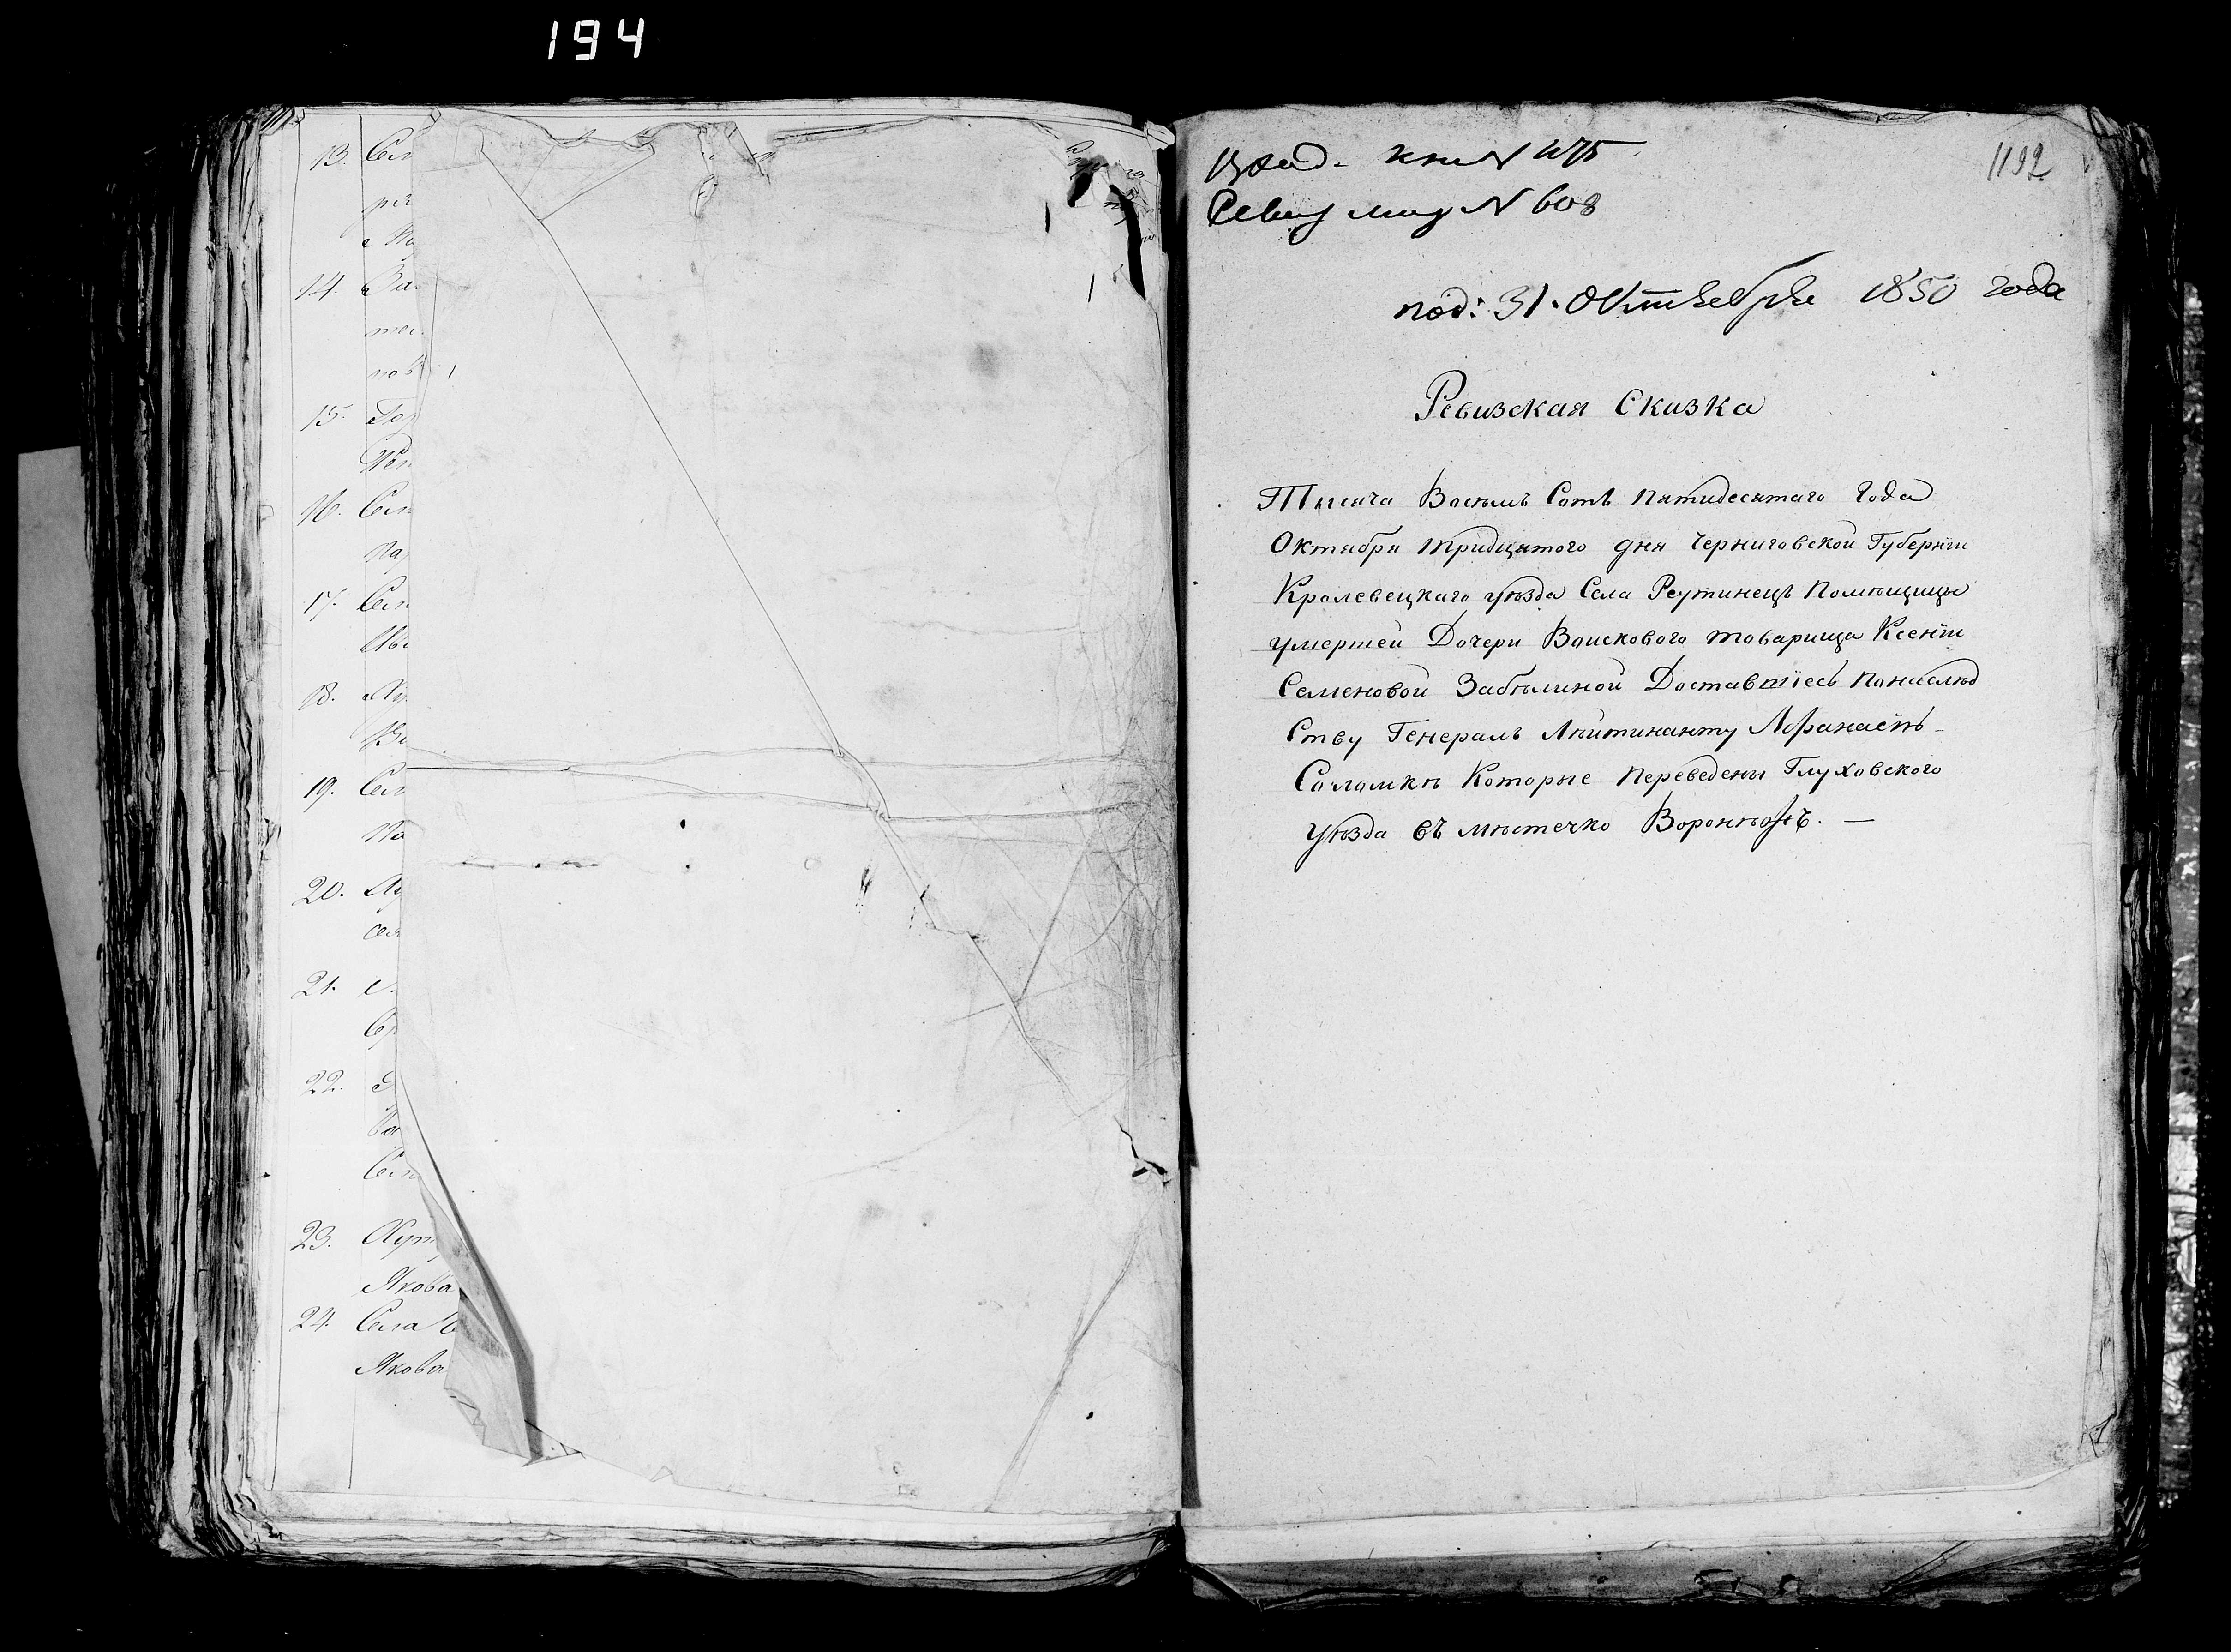 194
13. Сел
14.
15.
16. Сел
17. Сел
18.
19. Сел
20.
21.
22.
Сел
23. Хут
Якова
24. Села
Якова
1192
Вход. кн. N 475
Ревиз N 608
под: 31. Октября 1850 года
Ревизская Сказка
Тысяча Восемъ Сотъ пятидесятаго Года
Октября тридцятого дня Черниговской Губернїи
Кролевецкаго уѣзда Села Реутинецъ помѣщицы
умершей Дочери Воискового товарища Ксенїи
Семеновой Забѣлиной Доставшїесь понаслѣд
Ству Генералъ Лѣитинанту Афанасїѣ
Соломкѣ Которые переведены Глуховского
Уѣзда въ мѣстечко Воронѣжъ. —